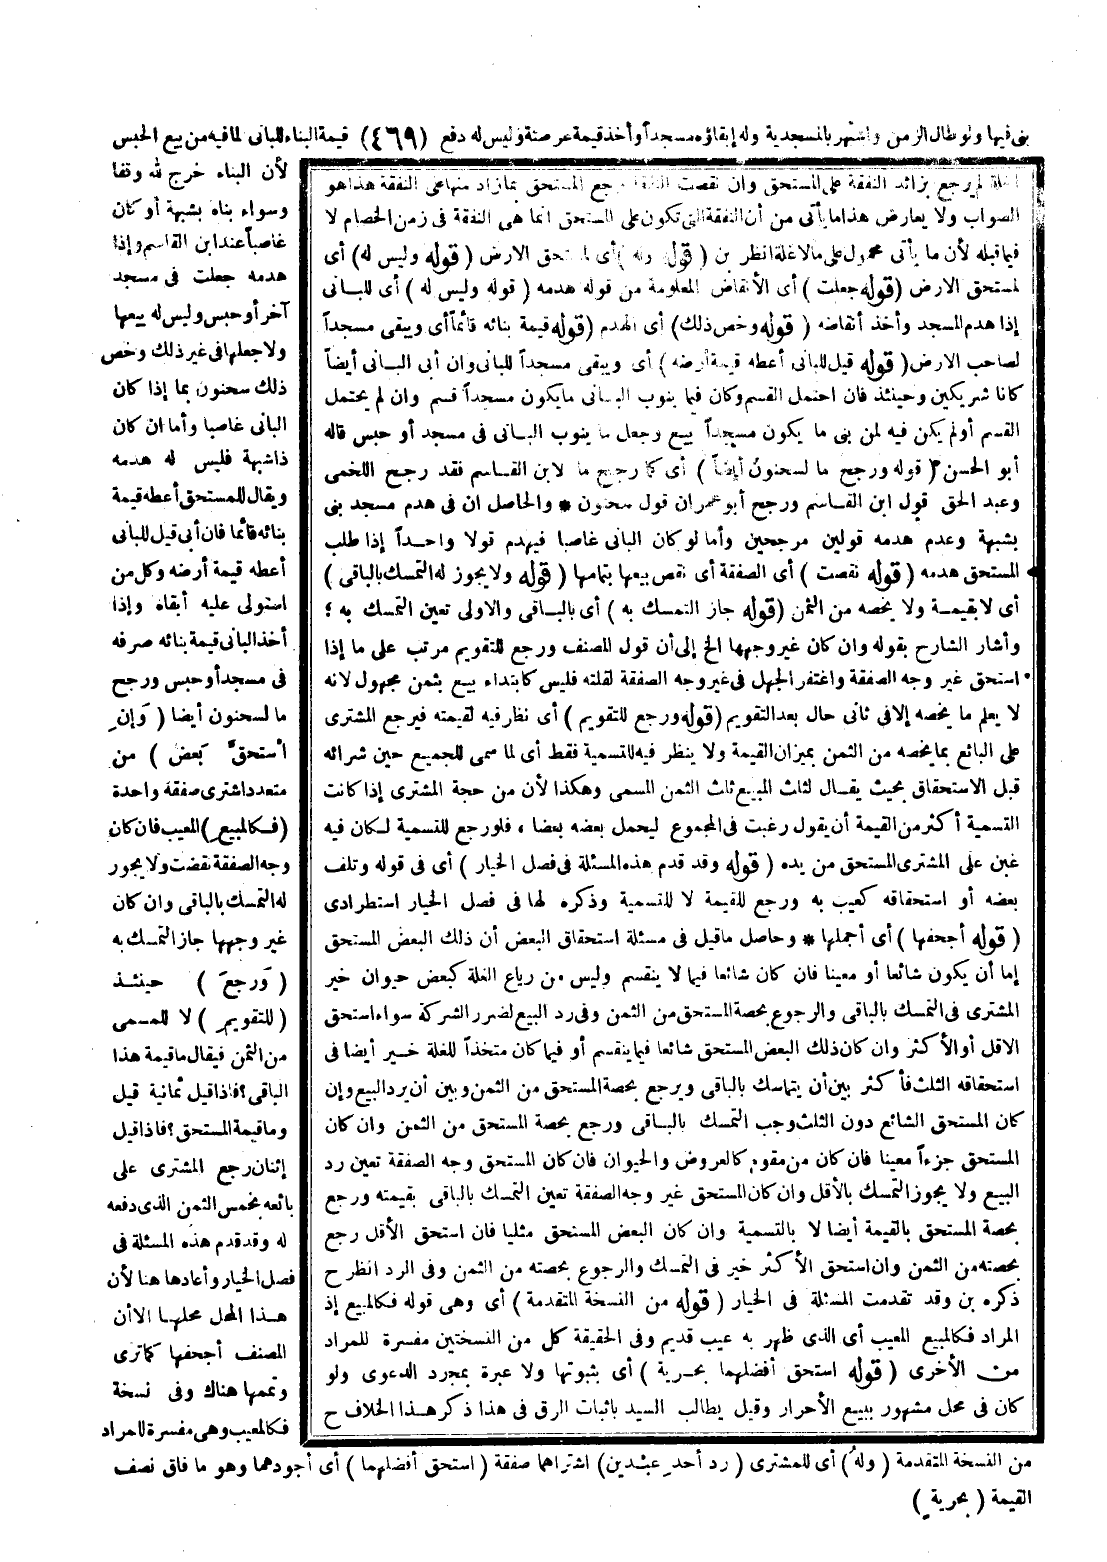 بنى فيها ولو طال الزمن واشتهر بالمسجدية وله إبقاؤه مسجداً وأخذ قيمة عرصته وليس له دفع (٤٦٩) قيمة البناء للبانى لما فيه من بيع الحبس
لأن البناء خرج لله وقفا
وسواء بناه بشبهة أو كان
غاصباً عند ابن القاسم وإذا
هدمه جعلت فى مسجد
آخر أو حبس وليس له بيعها
ولا جعلها فى غير ذلك وخص
ذلك سحنون بما إذا كان
البانى غاصبا وأما ان كان
ذا شبهة فليس له هدمه
ويقال للمستحق أعطه قيمة
بنائه قائما فان أبى قيل للبانى
أعطه قيمة أرضه وكل من
استولى عليه أبقاه وإذا
أخذ البانى قيمة بنائه صرفه
فى مسجد أو حبس ورجح
ما لسحنون أيضا (وَإنِ
اسْتحقَّ بَعض) من
متعدد اشترى صفقة واحدة
(فكالمبيع) المعيب فان كان
وجه الصفقة نقضت ولا يجوز
له التمسك بالباقى وان كان
غير وجهها جاز التمسك به
(وَرجعَ) حينئذ
(للتقويم) لا للمسمى
من الثمن فيقال ما قيمة هذا
الباقى؟ فاذا قيل ثمانية قيل
وما قيمة المستحق؟ فاذا قيل
إثنان رجع المشترى على
بائعه بخمس الثمن الذى دفعه
له وقد قدم هذه المسئلة فى
فصل الخيار وأعادها هنا لأن
هذا المحل محلها الا أن
المصنف أجحفها كما ترى
وتممها هناك وفى نسخة
فكالمعيب وهى مفسرة للمراد
لم يرجع بزائد النفقة على المستحق وان نقصت الغلة رجع المستحق بما زاد منها على النفقة هذا هو
الصواب ولا يعارض هذا ما يأتى من أن النفقة التى تكون على المستحق انما هى النفقة فى زمن الخصام لا
فيما قبله لأن ما يأتى محمول على مالا غلة انظر بن (قوله وله) أى لمستحق الارض (قوله وليس له) أى
لمستحق الارض (قوله جعلت) أى الأنقاض المعلومة من قوله هدمه (قوله وليس له) أى للبانى
إذا هدم المسجد وأخذ أنقاضه (قوله وخص ذلك) أى الهدم (قوله قيمة بنائه قائماً أى ويبقى مسجداً
لصاحب الارض (قوله قيل للبانى أعطه قيمة أرضه) أى ويبقى مسجداً للبانى وان أبى البانى أيضاً
كانا شريكين وحينئذ فان احتمل القسم وكان فيما ينوب البانى ما يكون مسجداً قسم وان لم يحتمل
القسم أولم يكن فيه لمن بنى ما يكون مسجداً بيع وجعل ما ينوب البانى فى مسجد أو حبس قاله
أبو الحسن (قوله ورجح ما لسحنون أيضاً) أى كما رجح ما لابن القاسم فقد رجح اللخمى
وعبد الحق قول ابن القاسم ورجح أبو عمران قول سحنون * والحاصل ان فى هدم مسجد بنى
بشبهة وعدم هدمه قولين مرجحين وأما لو كان البانى غاصبا فيهدم قولا واحداً إذا طلب
المستحق هدمه (قوله نقصت) أى الصفقة أى نقص بيعها بتمامها (قوله ولا يجوز له التمسك بالباقى)
أى لا بقيمة ولا بما يخصه من الثمن (قوله جاز التمسك به) أى بالباقى والاولى تعين التمسك به ؛
وأشار الشارح بقوله وان كان غير وجهها الخ إلى أن قول المصنف ورجع للتقويم مرتب على ما إذا
استحق غير وجه الصفقة واغتفر الجهل فى غير وجه الصفقة لقلته فليس كابتداء بيع بثمن مجهول لانه
لا يعلم ما يخصه إلا فى ثانى حال بعد التقويم (قوله ورجع للتقويم) أى نظر فيه لقيمته فيرجع المشترى
على البائع بما يخصه من الثمن بميزان القيمة ولا ينظر فيه للتسمية فقط أى لما سمى للجميع حين شرائه
قبل الاستحقاق بحيث يقال لثلث المبيع ثلث الثمن المسمى وهكذا لأن من حجة المشترى إذا كانت
التسمية أكثر من القيمة أن يقول رغبت فى المجموع ليحمل بعضه بعضا ، فلو رجع للتسمية لكان فيه
غبن على المشترى المستحق من يده (قوله وقد قدم هذه المسئلة فى فصل الخيار) أى فى قوله وتلف
بعضه أو استحقاقه كعيب به ورجع للقيمة لا للتسمية وذكره لها فى فصل الخيار استطرادى
(قوله أجحفها) أى أجملها * وحاصل ما قيل فى مسئلة استحقاق البعض أن ذلك البعض المستحق
إما أن يكون شائعا أو معينا فان كان شائعا فيما لا ينقسم وليس من رباع الغلة كبعض حيوان خير
المشترى فى التمسك بالباقى والرجوع بحصة المستحق من الثمن وفى رد البيع لضرر الشركة سواء استحق
الاقل أو الأكثر وان كان ذلك البعض المستحق شائعا فيما ينقسم أو فيما كان متخذاً للغلة خير أيضا فى
استحقاقه الثلث فأكثر بين أن يتماسك بالباقى ويرجع بحصة المستحق من الثمن وبين أن يرد البيع وإن
كان المستحق الشائع دون الثلث وجب التمسك بالباقى ورجع بحصة المستحق من الثمن وان كان
المستحق جزءاً معينا فان كان من مقوم كالعروض والحيوان فان كان المستحق وجه الصفقة تعين رد
البيع ولا يجوز التمسك بالأقل وان كان المستحق غير وجه الصفقة تعين التمسك بالباقى بقيمته ورجع
بحصة المستحق بالقيمة أيضا لا بالتسمية وان كان البعض المستحق مثليا فان استحق الأقل رجع
بحصته من الثمن وان استحق الأكثر خير فى التمسك والرجوع بحصته من الثمن وفى الرد انظر ح
ذكره بن وقد تقدمت المسئلة فى الخيار (قوله من النسخة المتقدمة) أى وهى قوله فكالمبيع إذ
المراد فكالمبيع المعيب أى الذى ظهر به عيب قديم وفى الحقيقة كل من النسختين مفسرة للمراد
من الأخرى (قوله استحق أفضلهما بحرية) أى بثبوتها ولا عبرة بمجرد الدعوى ولو
كان فى محل مشهور ببيع الأحرار وقيل يطالب السيد باثبات الرق فى هذا ذكر هذا الخلاف ح
من النسخة المتقدمة (ولهُ) أى للمشترى (رد أحدِ عبْدين) اشتراهما صفقة (استحق أفضلهما) أى أجودهما وهو ما فاق نصف
القيمة (بحرية)